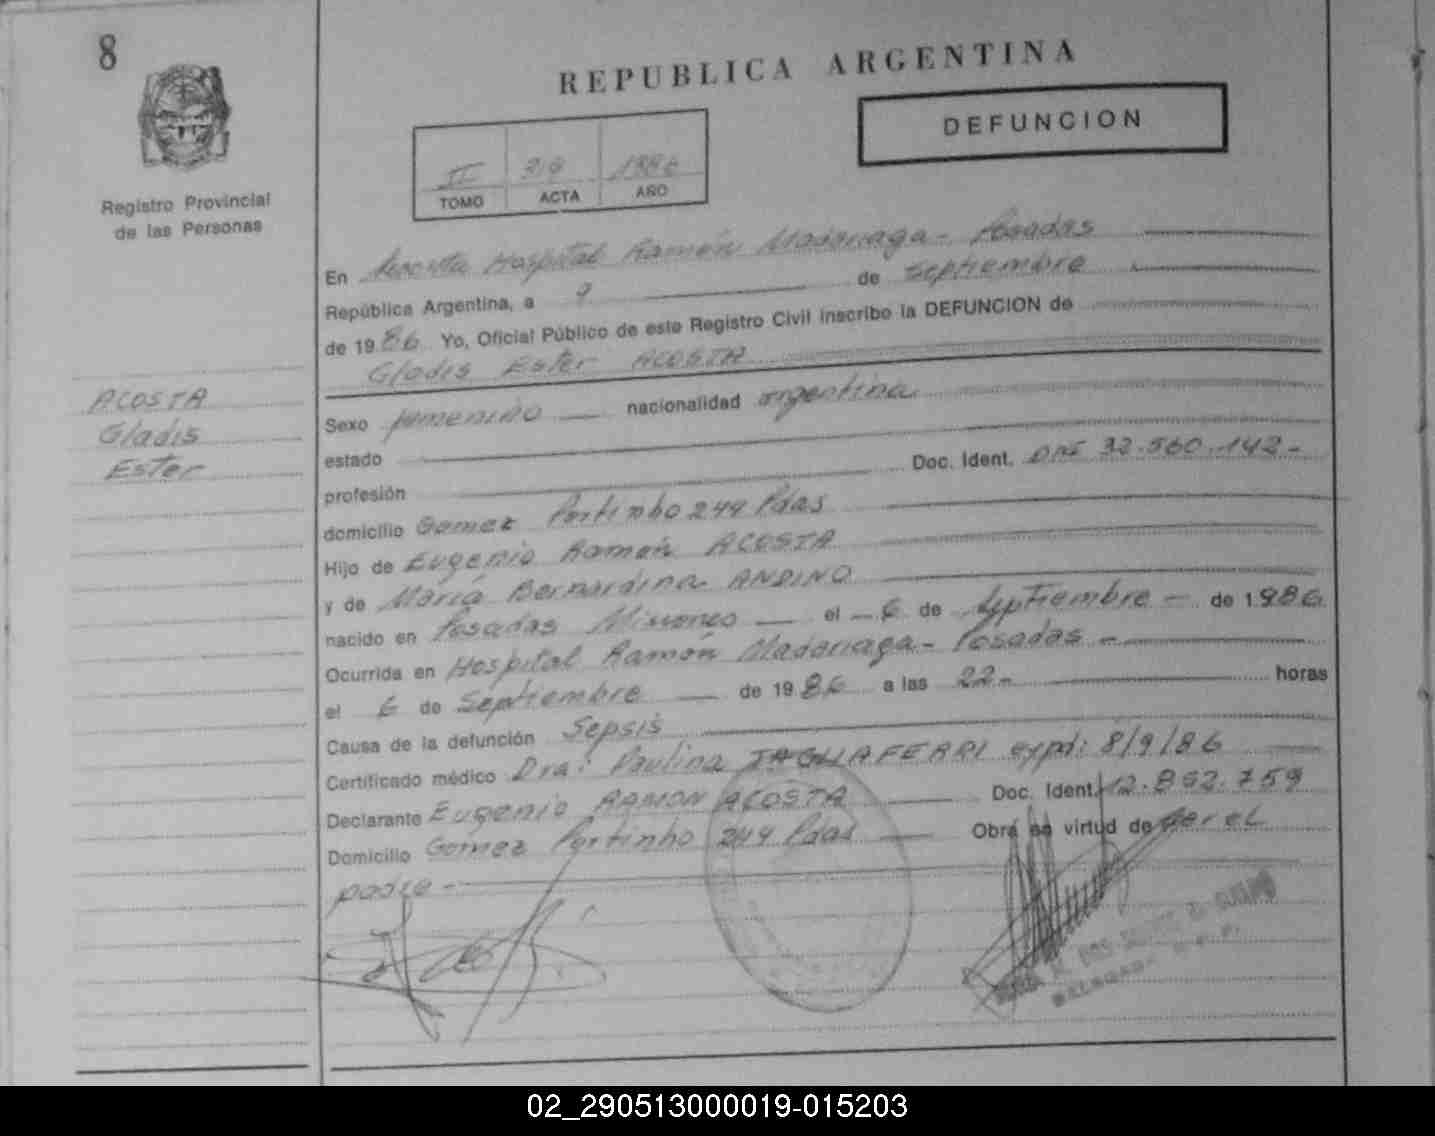 8
REPUBLICA ARGENTINA
DEFUNCION
II 1986
TOMO ACTA AÑO
Registro Provincial
de las Personas
En Hospital Ramón Madariaga - Posadas
República Argentina, a 9 de septiembre
de 1986 Yo, Oficial Público de este Registro Civil inscribo la DEFUNCION de
Gladis Ester ACOSTA
ACOSTA
Gladis
Ester
Sexo femenino nacionalidad argentina
estado
profesión Doc. Ident. DNI 32.560.142-
domicilio Gomez Portinho 244 Pdas
Hijo de Eugenio Ramón ACOSTA
y de María Bernardina ANDINO
nacido en Posadas Misiones el 6 de septiembre - de 1986
Ocurrida en Hospital Ramón Madariaga - Posadas -
el 6 de Septiembre de 1986 a las 22- horas
Causa de la defunción Sepsis
Certificado médico Dra: Paulina TAGLIAFERRI expd: 8/9/86
Declarante Eugenio RAMON ACOSTA Doc. Ident. 12.852.759
Domicilio Gomez Portinho 244 Pdas Obra en virtud de ser el
padre -
02_290513000019-015203